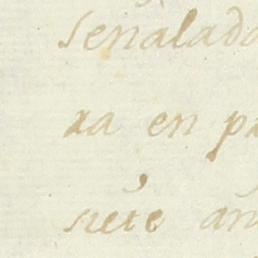 señalado
ra en pa
siete añ